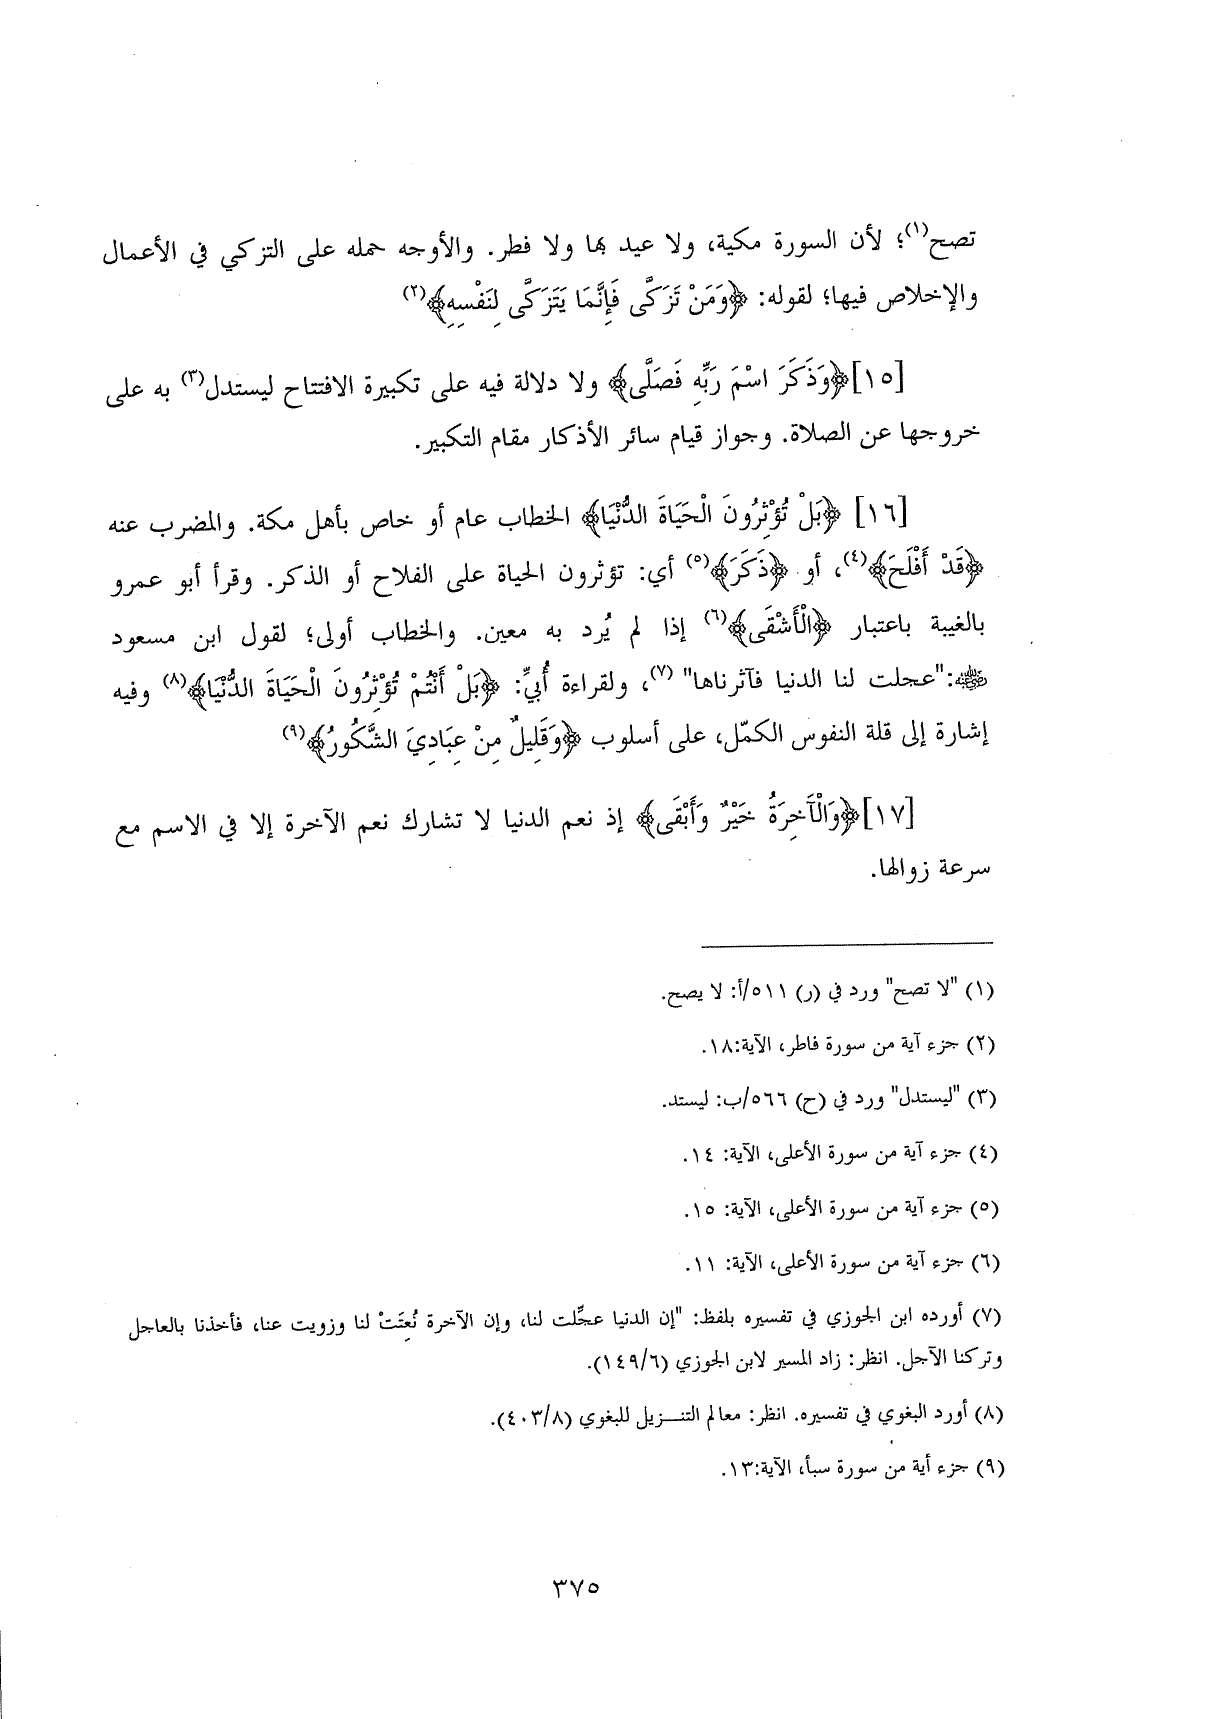 تصح(١)؛ لأن السورة مكية، ولا عيد بها ولا فطر. والأوجه حمله على التزكي في الأعمال
والإخلاص فيها؛ لقوله: ﴿وَمَنْ تَزَكَّى فَإِنَّمَا يَتَزَكَّى لِنَفْسِهِ﴾(٢)
[١٥]﴿وَذَكَرَ اسْمَ رَبِّهِ فَصَلَّى﴾ ولا دلالة فيه على تكبيرة الافتتاح ليستدل(٣) به على
خروجها عن الصلاة. وجواز قيام سائر الأذكار مقام التكبير.
[١٦] ﴿بَلْ تُؤْثِرُونَ الْحَيَاةَ الدُّنْيَا﴾ الخطاب عام أو خاص بأهل مكة. والمضرب عنه
﴿قَدْ أَفْلَحَ﴾(٤)، أو ﴿ذَكَرَ﴾(٥) أي: تؤثرون الحياة على الفلاح أو الذكر. وقرأ أبو عمرو
بالغيبة باعتبار ﴿الْأَشْقَى﴾(٦) إذا لم يُرد به معين. والخطاب أولى؛ لقول ابن مسعود
:"عجلت لنا الدنيا فآثرناها" (٧)، ولقراءة أُبيِّ: ﴿بَلْ أَنْتُمْ تُؤْثِرُونَ الْحَيَاةَ الدُّنْيَا﴾(٨) وفيه
إشارة إلى قلة النفوس الكمّل، على أسلوب ﴿وَقَلِيلٌ مِنْ عِبَادِيَ الشَّكُورُ﴾(٩)
[١٧]﴿وَالْآَخِرَةُ خَيْرٌ وَأَبْقَى﴾ إذ نعم الدنيا لا تشارك نعم الآخرة إلا في الاسم مع
سرعة زوالها.
(١) "لا تصح" ورد في (ر) ٥١١/أ: لا يصح.
(٢) جزء آية من سورة فاطر، الآية:١٨.
(٣) "ليستدل" ورد في (ح) ٥٦٦/ب: ليستد.
(٤) جزء آية من سورة الأعلى، الآية: ١٤.
(٥) جزء آية من سورة الأعلى، الآية: ١٥.
(٦) جزء آية من سورة الأعلى، الآية: ١١.
(٧) أورده ابن الجوزي في تفسيره بلفظ: "إن الدنيا عجِّلت لنا، وإن الآخرة نُعِتَتْ لنا وزويت عنا، فأخذنا بالعاجل
وتركنا الآجل. انظر: زاد المسير لابن الجوزي (١٤٩/٦).
(٨) أورد البغوي في تفسيره. انظر: معالم التنـزيل للبغوي (٤٠٣/٨).
(٩) جزء أية من سورة سبأ، الآية:١٣.
٣٧٥